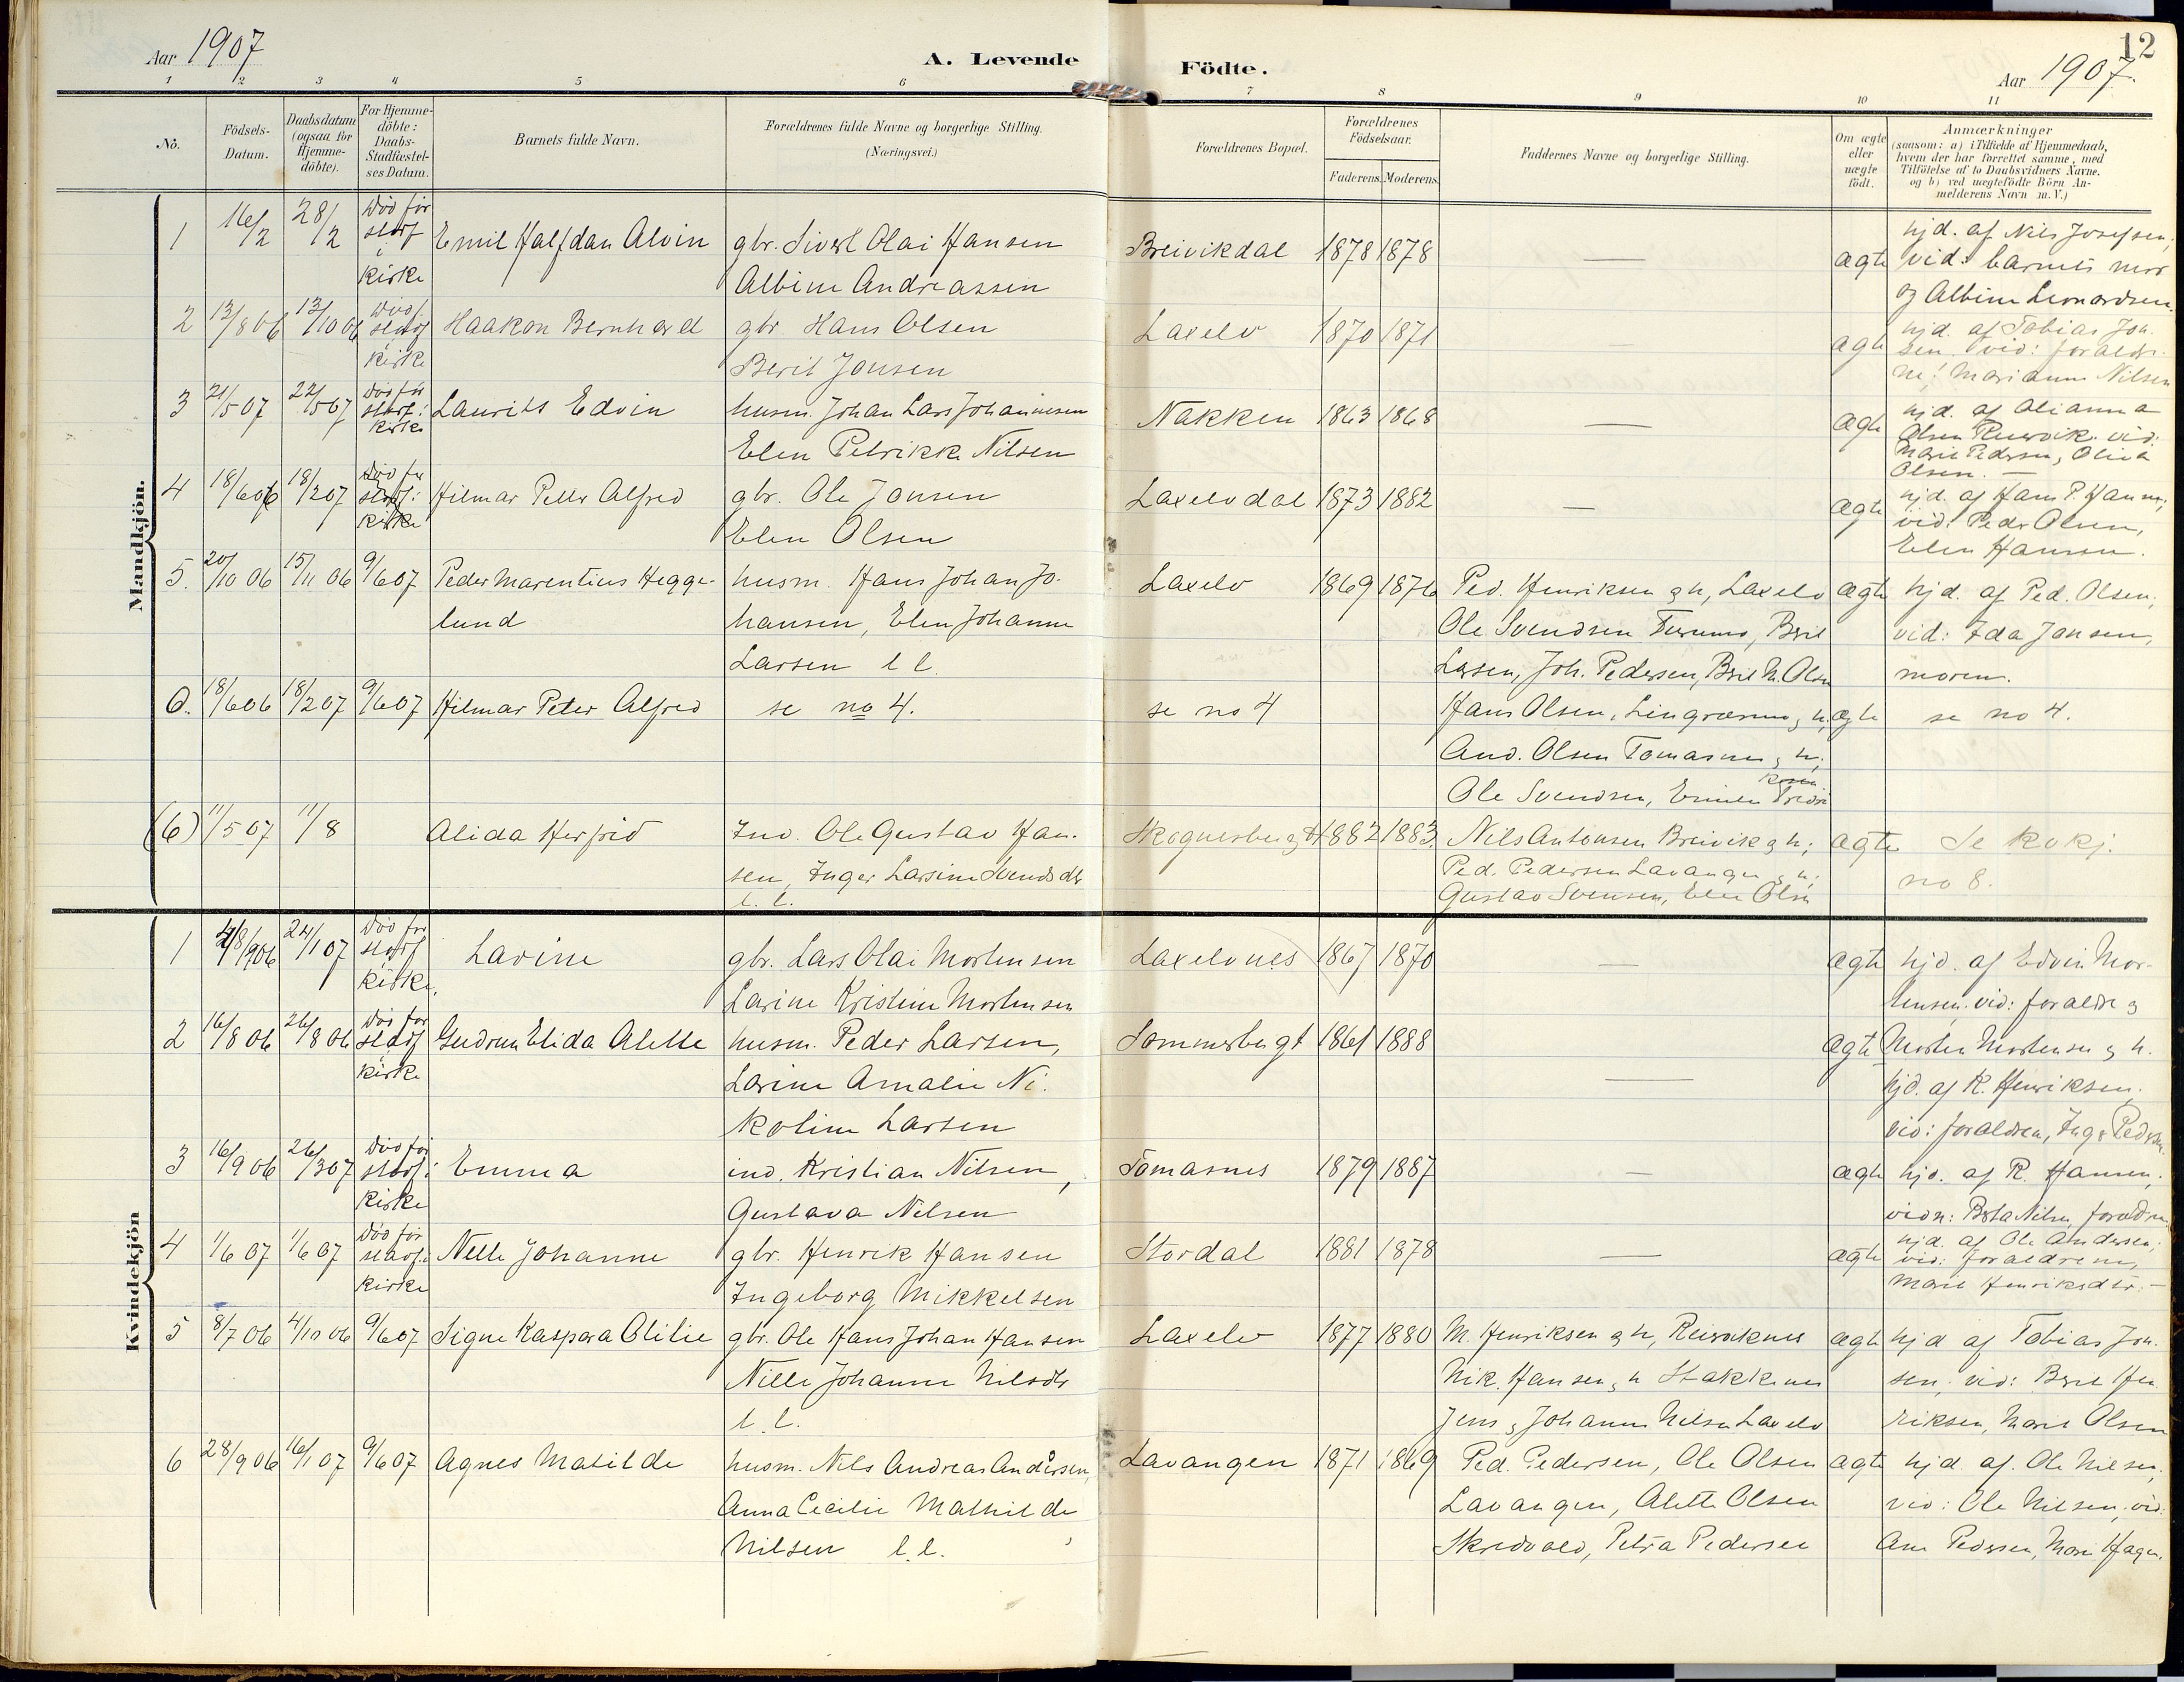 Aar 1907
A. Levende Födte.
12
Aar 1907.
1 2 3 4 5 6 7 8 9 10 11
No.
Födsels-Datum.
Daabsdatum (ogsaa for Hjemme-döbte).
For Hjemme-döbte: Daabs-Stadfæstel-ses Datum.
Barnets fulde Navn.
Forældrenes fulde Navne og borgerlige Stilling.
(Næringsvei.)
Forældrenes Bopæl.
Forældrenes Födselsaar.
Faderens. Moderens.
Faddernes Navne og borgerlige Stilling.
Om ægte eller uægte födt.
Anmærkninger
(saasom: a) i Tilfælde af Hjemmedaab,
hvem der har forrettet samme, med
Tilföielse af to Daabsvidners Navne.
og b) ved uægtefödte Börn An-
melderens Navn m. V.)
Mandkjön.
1 16/2 28/2 død før stadf i kirke Emil Halfdan Alvin gbr. Sivert Olai Hansen Breivikdal 1878 1878 — ægte hjd. af Nils Josefsen,
Albine Andreassen vid: barnets mor
og Albine Leonardsen.
2 13/8 06 13/10 06 død f. stadf i kirke Haakon Bernhard gbr. Hans Olsen Laxelv 1870 1871 — ægte hjd. af Tobias Jon-
Berit Jonsen sen. vid: forældre-
ne, Marianne Nilsen
3 21/5 07 22/5 07 død før stadf i kirke Laurits Edvin husm. Johan Lars Johannesen Nakken 1863 1868 — ægte hjd. af Olianna
Elen Petrikke Nilsen Olsen Reiervik. vid:
Marie Pedersen, Oliva
Olsen. —
4 18/6 06 18/2 07 død før stadf i kirke Hilmar Peter Alfred gbr. Ole Jonsen Laxelvdal 1873 1882 — ægte hjd. af Hans P. Hansen,
Elen Olsen vid: Peder Olsen,
Elen Hansen.
5. 20/10 06 15/11 06 9/6 07 Peder Marentius Hegge- husm. Hans Johan Jo- Laxelv 1869 1876 Ped. Henriksen & h, Laxelv ægte hjd. af Ped. Olsen,
lund hansen, Elen Johanne Ole Svendsen Furumo, Berit vid: Ida Jansen,
Larsen l l Larsen, Joh. Pedersen, Berit M. Olsen moren.
6. 18/6 06 18/2 07 9/6 07 Hilmar Peter Alfred se no 4. se no 4 Hans Olsen, & h, ægte se no 4.
And. Olsen Tomasnes & h,
Ole Svendsen, Fredri
ksen
(6) 11/5 07 11/8 Alida Herfrid Ind. Ole Gustav Han- Skognesbugt 1882 1883. Nils Antonsen Breivik & h; ægte Se kvkj.
sen, Inger Larsine Svendsdtr Ped. Pedersen Lavangen & h; no 8.
l. l. Gustav Svensen, Elen Olsen
Kvindekjön
1 4/8 1906 24/1 07 død før stadf i kirke. Lavine gbr. Lars Olai Mortensen Laxelvnes 1867 1870 — ægte hjd. af Edvin Mor-
Larine Kristine Mortensen tensen. vid: forældre &
2 16/8 06 26/8 06 død før stadf i kirke Gudrun Elida Alette husm. Peder Larsen, Sommerbugt 1861 1888 — ægte Morten Mortensen & h.
Larine Amalie Ni- hjd. af K. Henriksen,
koline Larsen vid: forældren, Ing. Pedersen
3 16/9 06 26/3 07 død før stadf i kirke Emma ind. Kristian Nilsen, Tomasnes 1879 1887 — ægte hjd. af R. Hansen,
Gustava Nilsen vidn: Berta Nilsen, forældren
4 1/6 07 1/6 07 død før stadf. i kirke Nelle Johanne gbr. Henrik Hansen Stordal 1881 1878 — ægte hjd. af Ole Andersen,
Ingeborg Mikkelsen vid: forældrene,
Marie Henriksdtr. —
5 8/7 06 4/10 06 9/6 07 Signe Kaspara Otilie gbr. Ole Hans Johan Hansen Laxelv 1877 1880 M. Henriksen & h, Reiervknes ægte hjd af Tobias Jon-
Nille Johanne Nilsdtr Nik. Hansen & h Stakkenes sen, vid: Berit Hen
l. l. Jens & Johanne Nilsen Laxelv riksen, Marie Olsen
6 28/9 06 16/1 07 9/6 07 Agnes Matilde husm. Nils Andreas Andersen, Lavangen 1871 1869 Ped. Pedersen, Ole Olsen ægte hjd af. Ole Nilsen,
Anna Cecilie Mathilde Lavangen, Alette Olsen vid: Ole Nilsen, vid:
Nilsen l. l. Skredvold, Petra Pedersen Ane Pedersen,